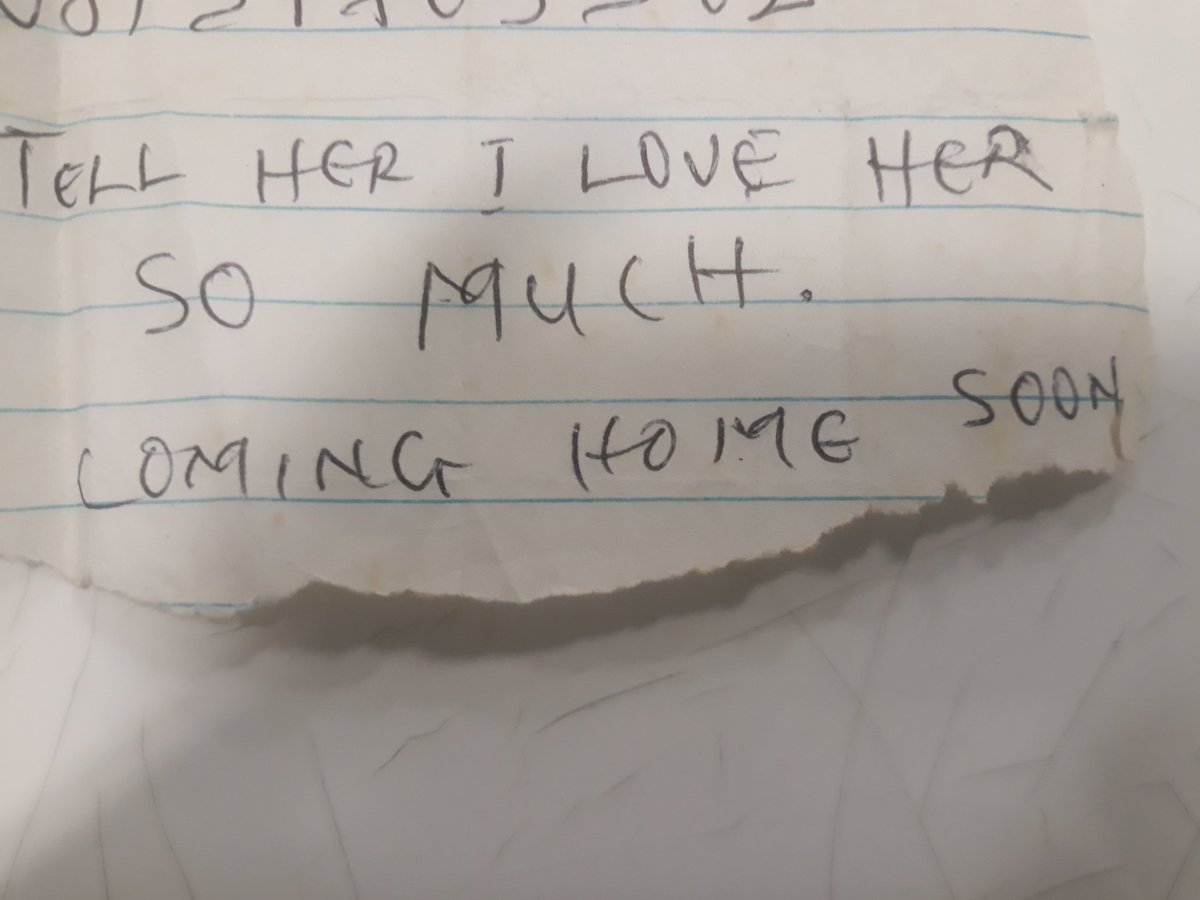 TELL HER I LOVE HER
SO MUCH.
COMING HOME SOON